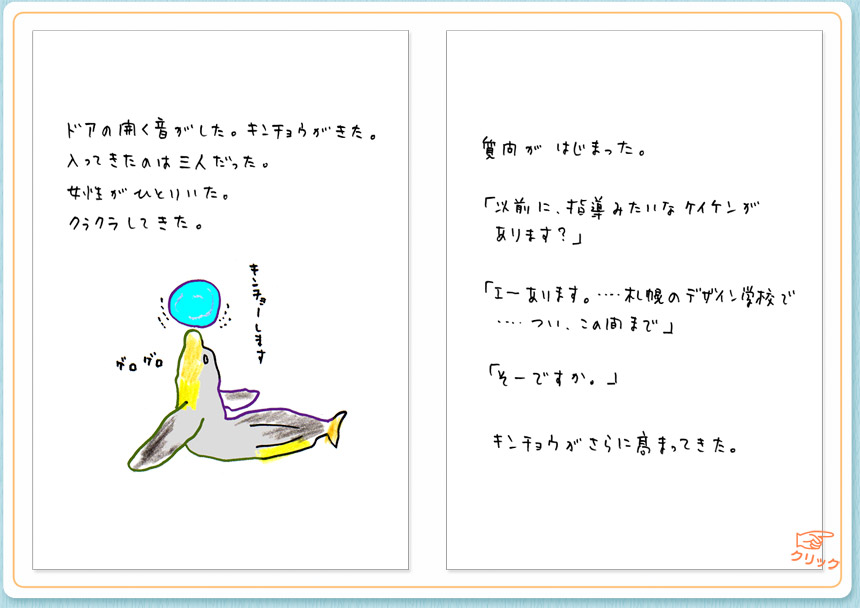 ドアの開く音がした。キンチョウがきた。
入ってきたのは三人だった。
女性がひとりいた。
クラクラしてきた。
キンチョーします
ゲロゲロ
質問が はじまった。
「以前に、指導みたいなケイケンが
あります?」
「エーあります。‥‥札幌のデザイン学校で
‥‥ つい、この間まで」
「そーですか。」
キンチョウがさらに高まってきた。
クリック